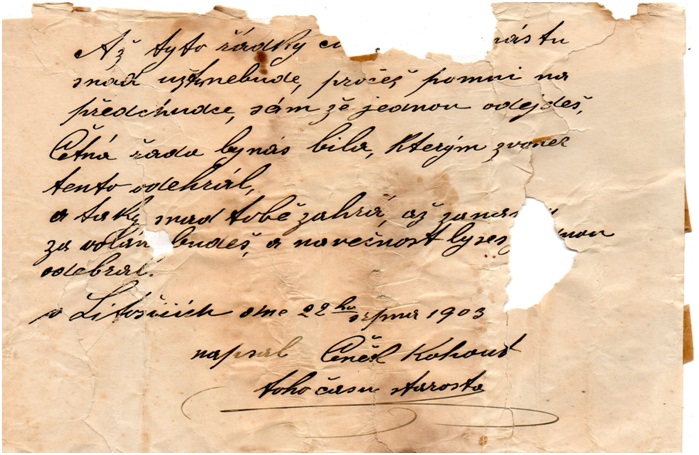 Až tyto řádky nás tu
snad už nebude, pročež pomni na
předchůdce, sám že jednou odejdeš,
Četná řada by nás bila, kterým zvonek
tento odehrál,
a taky snad tobě zahrá, až
za volán budeš, a na věčnost bys
odebral.
v Litošicích dne 22ho srpna 1903
napsal Čeněk Kohout
toho času starosta